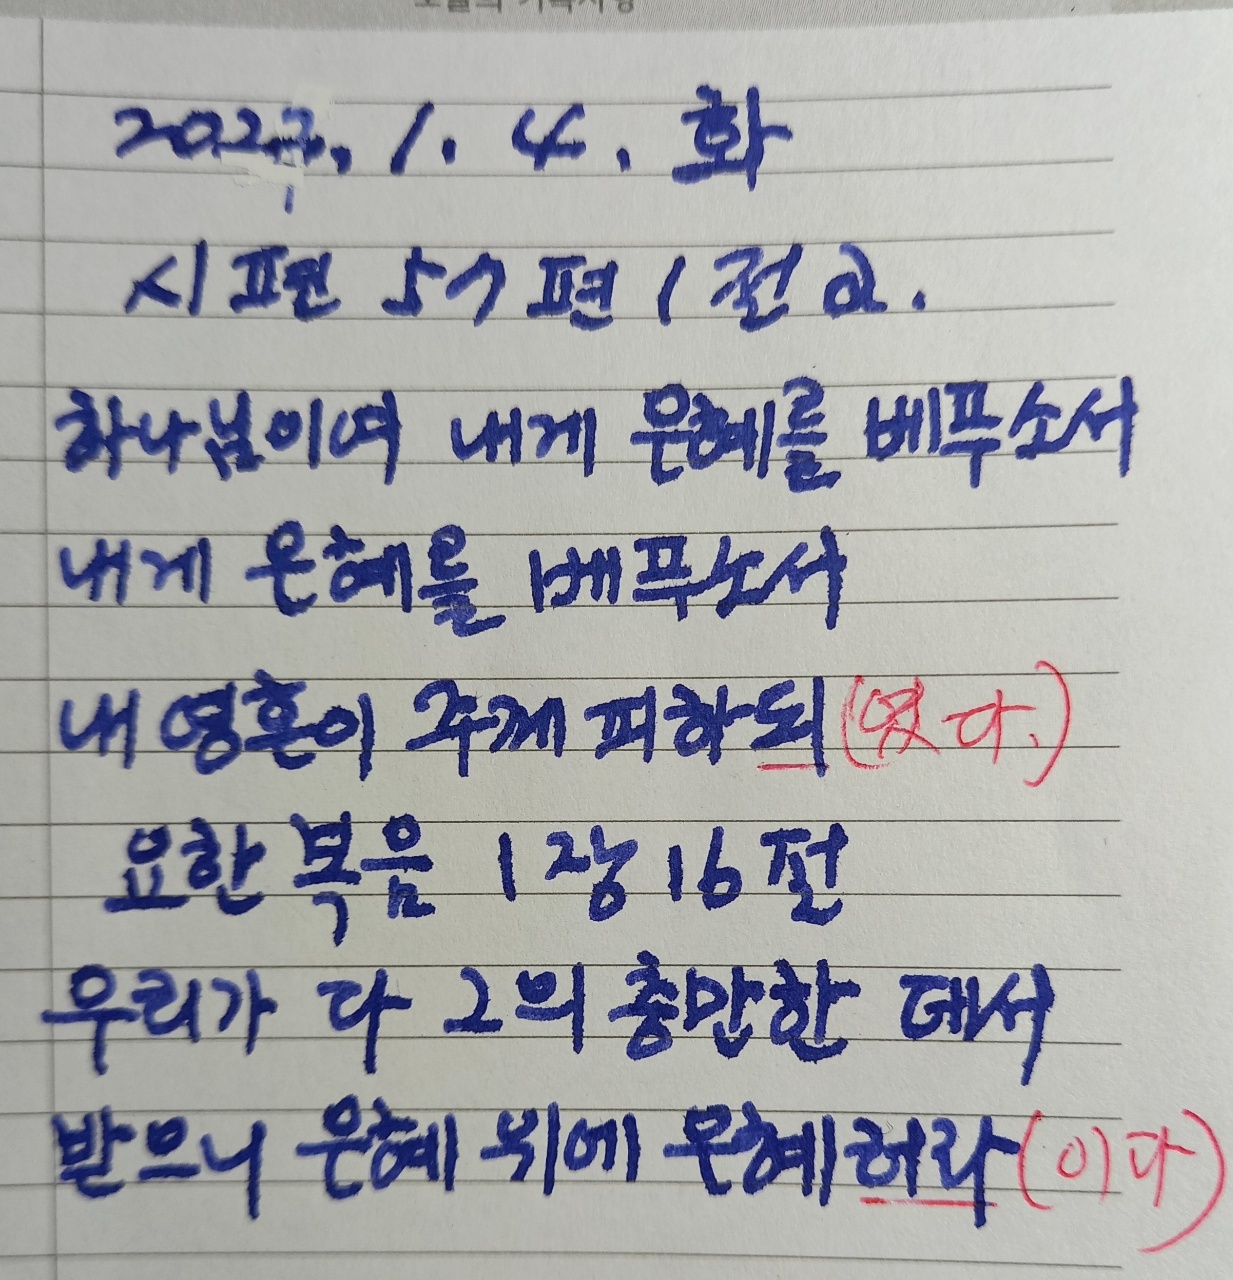 2022. 1. 4. 화
시편 57편 1절 a.
하나님이여 내게 은혜를 베푸소서
내게 은혜를 베푸소서
내 영혼이 주께 피하되(였다.)
요한복음 1장 16절
우리가 다 그의 충만한 데서
받으니 은혜 위에 은혜러라(이다)